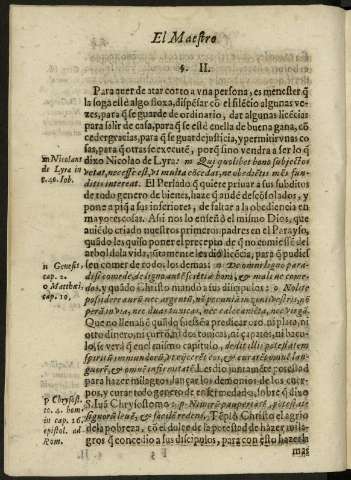 El Maestro
§. II.
Para auer de atar corto a vna persona, es menester q̃
la soga estè algo floxa, dispẽsar cõ el silẽcio algunas ve-
zes, para q̃ se guarde de ordinario, dar algunas licẽcias
para salir de casa, para q̃ se estè en ella de buena gana, cõ
ceder gracias, para q̃ se guarde justicia, y permitir vnas co
sas, para q̃ otras se executẽ, porq̃ sino vendra a ser lo q̃
m Nicolaus
dixo Nicolao de Lyra: m Qui quoslibet bona subiectos
de Lyra in
vetat, necesse est, vt multa cõcedat, ne obedientis mẽs fun-
p. 40. Iob.
ditus intereat. El Perlado q̃ quiere priuar a sus subditos
de todo genero de bienes, haze q̃ andẽ descõsolados, y
pone a piq̃ a sus inferiores, de faltar a la obediencia en
mayores cosas. Asi nos lo enseñò el mismo Dios, que
auiẽdo criado nuestros primeros padres en el Parayso,
quãdo les quiso poner el precepto de q̃ no comiessẽ del
n Genesis,
arbol de la vida, jũtamente les diò licẽcia, para q̃ pudies
cap. 2.
sen comer de todo los demas: n De omni ligno para-
disi comede, de ligno autẽ sciẽtiæ boni, & mali ne come-
o Matthæi,
das, y quãdo Christo mandò a sus discipulos: o Nolite
cap. 10,
possidere aurũ nec argentũ, nec pecuniã in zonis vestris, nõ
perã in via, nec duas tunicas, nec calceamẽta, nec virgã.
Que no lleuassẽ quãdo fuessẽ a predicar oro, ni plata, ni
otro dinero, ni çurrõ, ni dos tunicas, ni çapatos, ni bacu-
lo, se verà q̃ en el mismo capitulo, dedit illis potestatem
spirituũ immundorũ, vt eijcerẽt eos, & curarẽt omnẽ lan-
guorẽ, & omnẽ infirmitatẽ. Les diò juntamẽte potestad
para hazer milagros, lançar los demonios de los cuer-
pos, y curar todo genero de enfermedad, sobre lo q̃ dixo
p Chrysost.
S. Iuã Chrysostomo: p Nimirũ paupertatẽ, potestate
to. 4. hom.
signorũ leuẽ, & facilẽ reddens. Tẽplò Christo el agrio
in cap. 16.
de la pobreza, cõ el dulce de la potestad de hazer mila-
epistol. ad
gros q̃ concedio a sus discipulos, para con esto hazerla
Rom.
mas